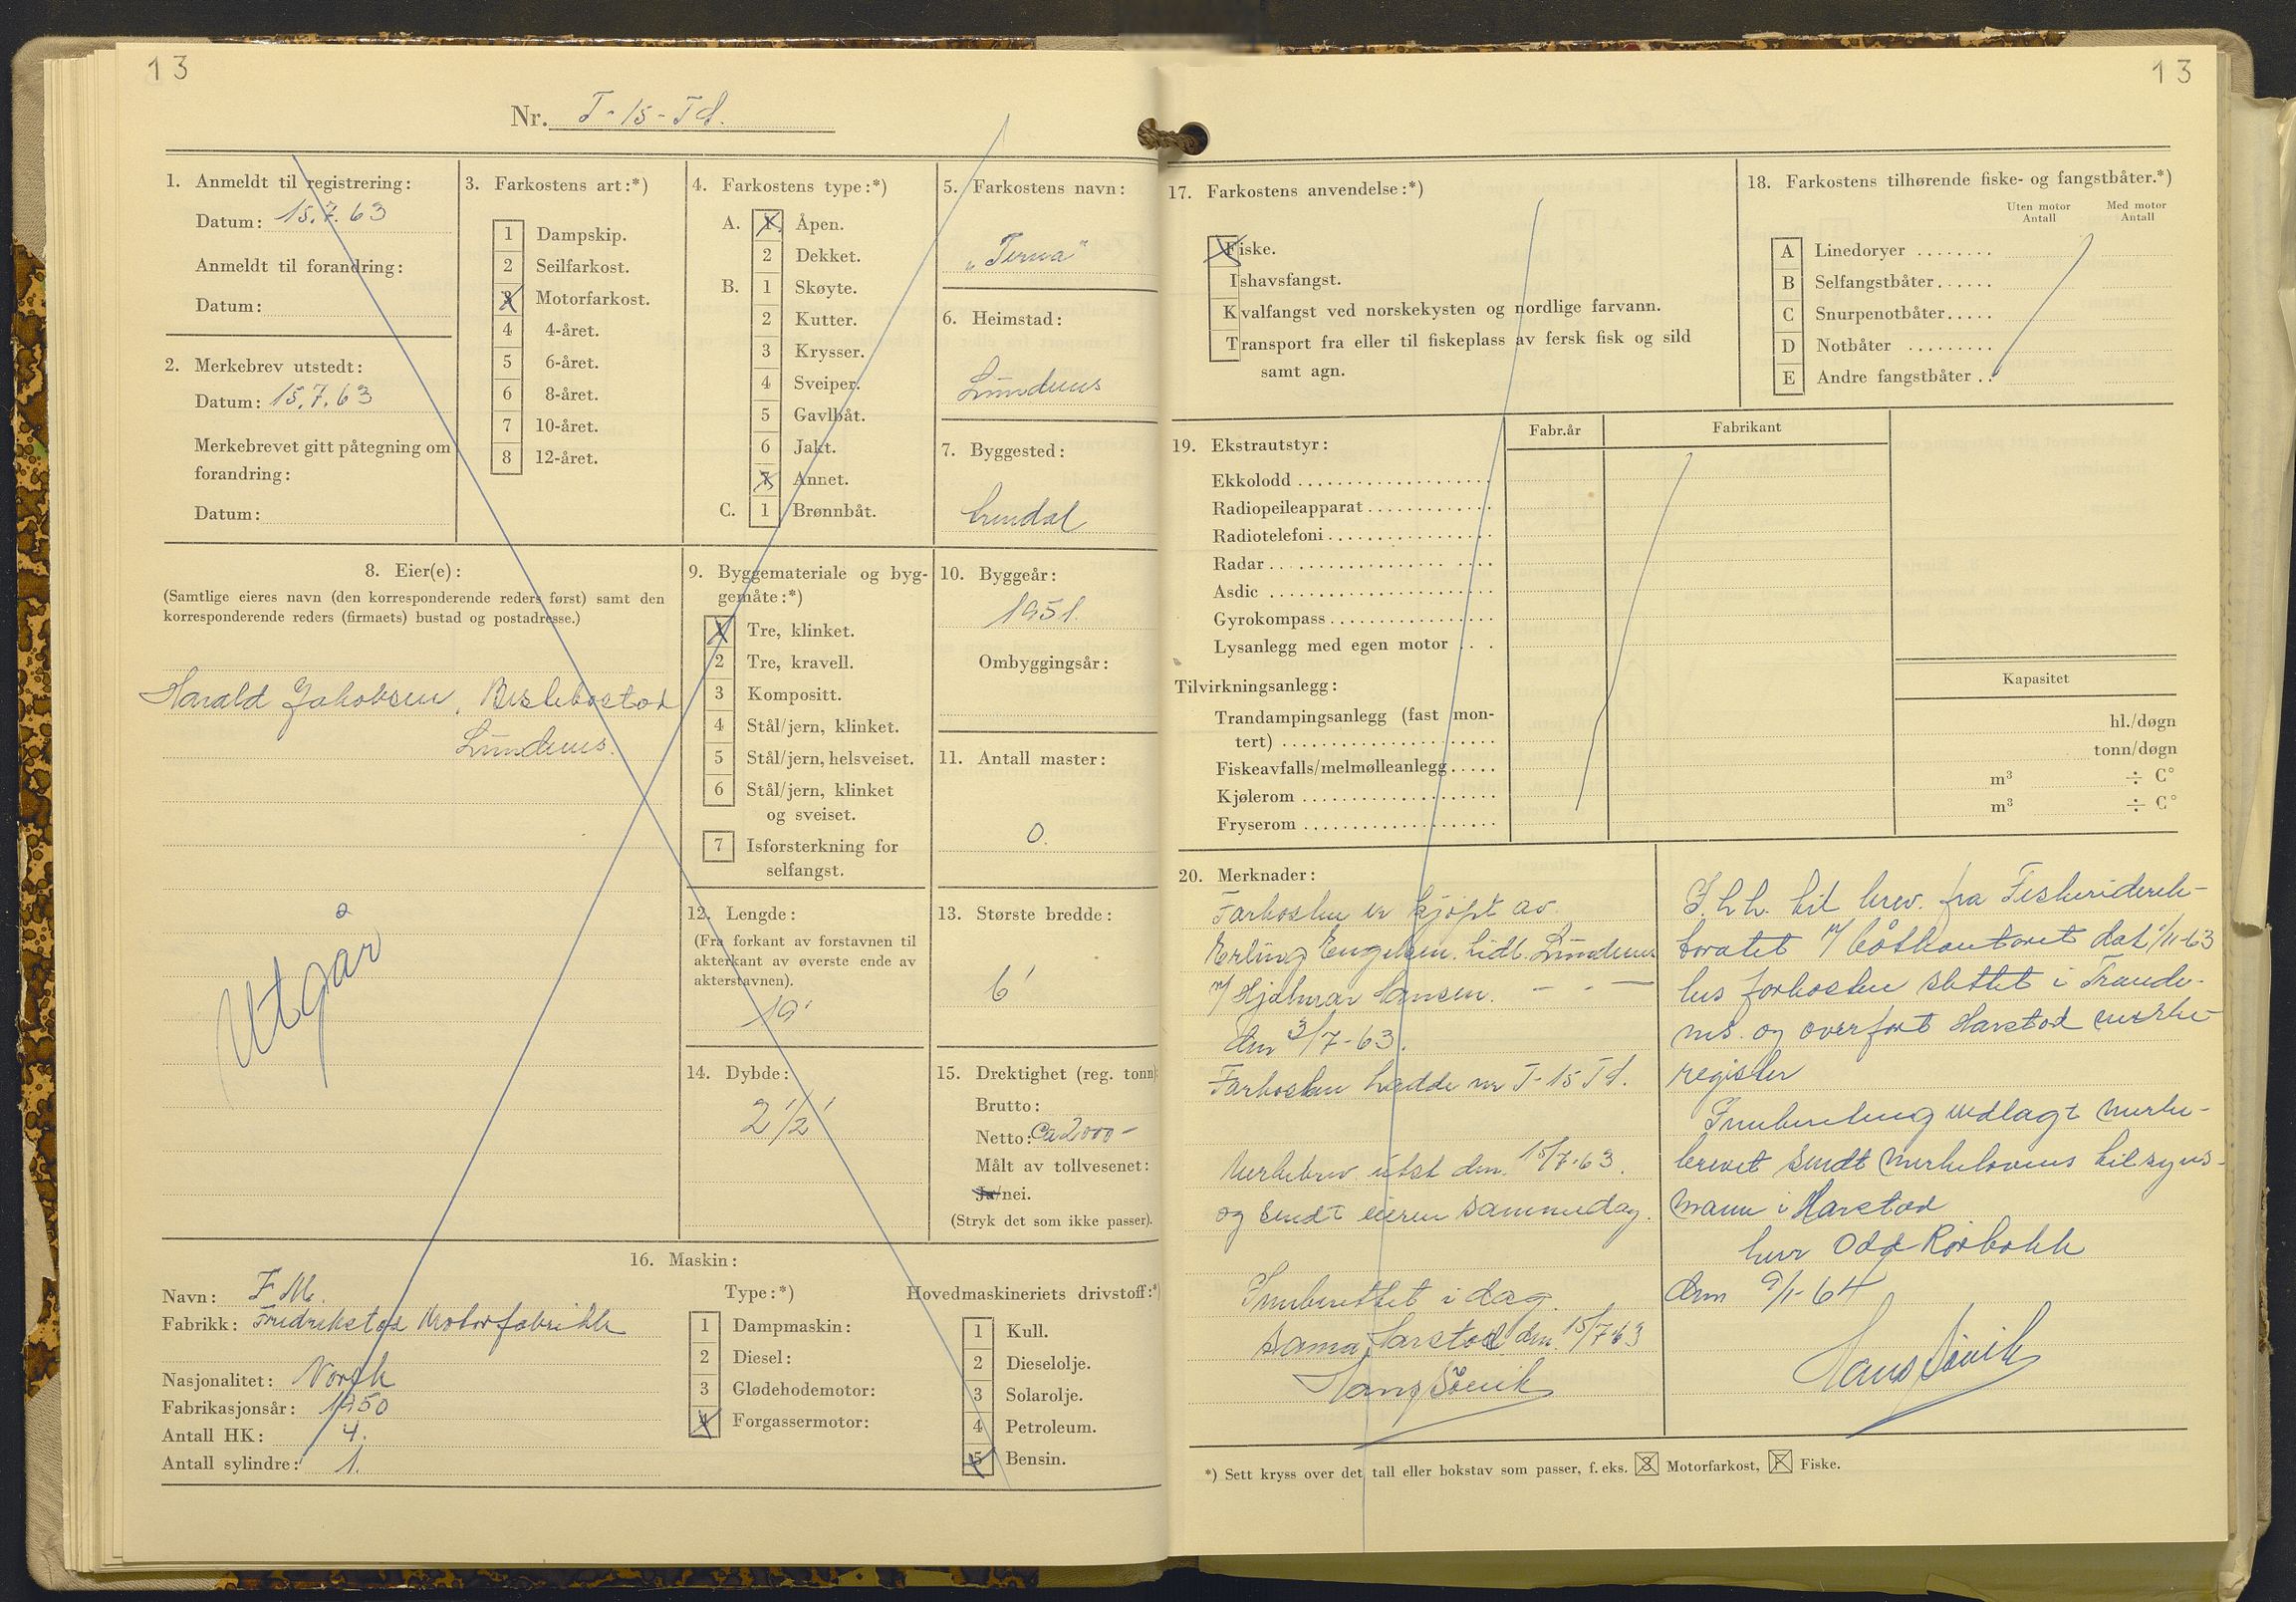 13
Nr. T-15-Td.
1. Anmeldt til registrering:
Datum: 15.7.63
Anmeldt til forandring:
Datum:
2. Merkebrev utstedt:
Datum: 15.7.63
Merkebrevet gitt påtegning om
forandring:
Datum:
3. Farkostens art:*)
1 Dampskip.
2 Seilfarkost.
3 Motorfarkost.
4 4-året.
5 6-året.
6 8-året.
7 10-året.
8 12-året.
4. Farkostens type:*)
A. 1 Åpen.
2 Dekket.
B. 1 Skøyte.
2 Kutter.
3 Krysser.
4 Sveiper.
5 Gavlbåt.
6 Jakt.
7 Annet.
C. 1 Brønnbåt.
5. Farkostens navn:
„Terna"
6. Heimstad:
Lundenes
7. Byggested:
8. Eier(e):
(Samtlige eieres navn (den korresponderende reders først) samt den
korresponderende reders (firmaets) bustad og postadresse.)
Harald Jakobsen,
Lundenes.
Utgår
9. Byggemateriale og byg-
gemåte:*)
1 Tre, klinket.
2 Tre, kravell.
3 Kompositt.
4 Stål/jern, klinket.
5 Stål/jern, helsveiset.
6 Stål/jern, klinket
og sveiset.
7 Isforsterkning for
selfangst.
10. Byggeår:
1951.
Ombyggingsår:
11. Antall master:
0.
12. Lengde:
(Fra forkant av forstavnen til
akterkant av øverste ende av
akterstavnen).
19'
13. Største bredde:
6'
14. Dybde:
2 1/2'
15. Drektighet (reg. tonn)
Brutto:
Netto: Ca 2000-
Målt av tollvesenet:
Ja/nei.
(Stryk det som ikke passer).
16. Maskin:
Navn: F.M.
Fabrikk: Fredrikstad Motorfabrikk
Nasjonalitet: Norsk
Fabrikasjonsår: 1950
Antall HK: 4.
Antall sylindre: 1.
Type:*)
1 Dampmaskin:
2 Diesel:
3 Glødehodemotor:
4 Forgassermotor:
Hovedmaskineriets drivstoff:*)
1 Kull.
2 Dieselolje.
3 Solarolje.
4 Petroleum.
5 Bensin.
13
17. Farkostens anvendelse:*)
Fiske.
Ishavsfangst.
Kvalfangst ved norskekysten og nordlige farvann.
Transport fra eller til fiskeplass av fersk fisk og sild
samt agn.
18. Farkostens tilhørende fiske- og fangstbåter.*)
Uten motor Med motor
Antall Antall
A Linedoryer ........
B Selfangstbåter......
C Snurpenotbåter.....
D Notbåter .........
E Andre fangstbåter ..
19. Ekstrautstyr:
Fabr.år Fabrikant
Ekkolodd
Radiopeileapparat
Radiotelefoni
Radar
Asdic
Gyrokompass
Lysanlegg med egen motor
Tilvirkningsanlegg:
Kapasitet
Trandampingsanlegg (fast mon-
tert) hl./døgn
Fiskeavfalls/melmølleanlegg tonn/døgn
Kjølerom m³ ÷ C°
Fryserom m³ ÷ C°
20. Merknader:
Farkosten er kjøpt av
Erling Engelsen. tidl. Lundenes
v/ Hjalmar Hansen. — - —
den 3/7-63.
Farkosten hadde nr T-15 Td.
Merkebrev utst den. 15/7-63.
og sendt eieren sammedag.
Innberettet i dag.
Sama, Harstad, den. 15/7-63
Hans Søvik
F.h.h. til brev. fra Fiskeridirek-
toratet v/ båtkontoret dat 1/11-63
les farkosten slettet i Tronde-
nes. og overført Harstad merke-
register
Innberetning vedlagt merke-
brevet sendt merkelovens tilsyns-
mann i Harstad
herr Odd Rørbakk
den 9/1-64
Hans Søvik
*) Sett kryss over det tall eller bokstav som passer, f. eks. 3 Motorfarkost, F Fiske.